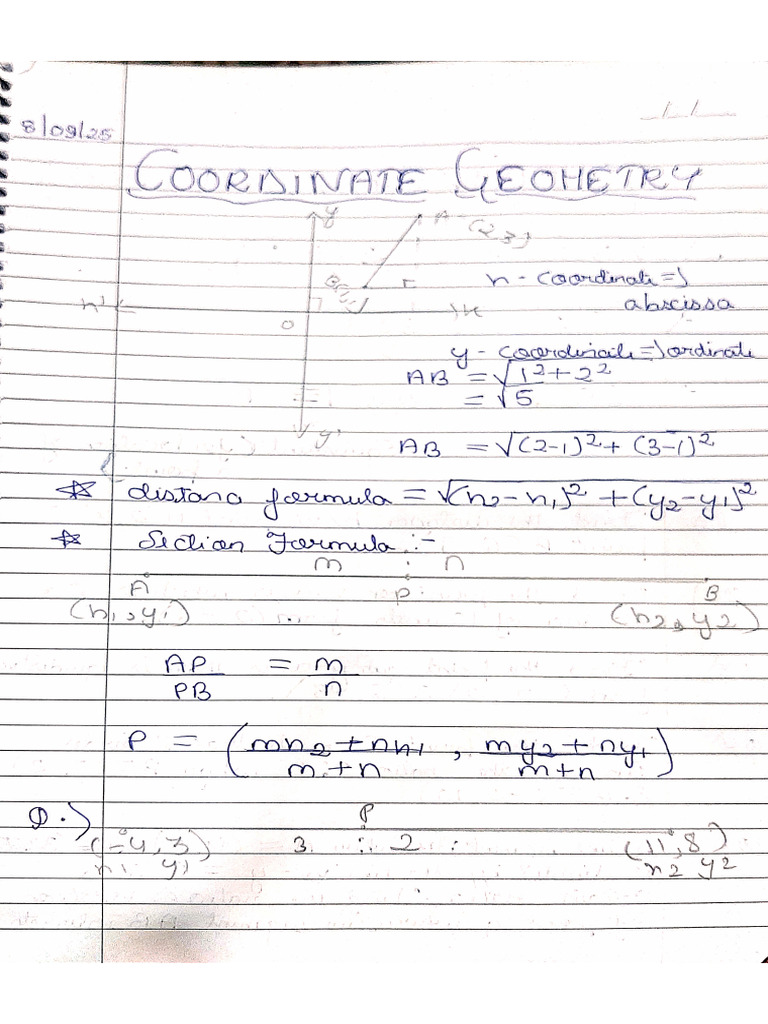 8/09/25
COORDINATE GEOMETRY
y
A (2,3)
x - coordinate =>
abscissa
x' O x
y - coordinate => ordinate
AB = √1² + 2²
= √5
y'
AB = √(2-1)² + (3-1)²
☆ distanc formula = √(x₂ - x₁)² + (y₂ - y₁)²
☆ Section Formula :-
m : n
A P B
(x₁, y₁) (x₂, y₂)
AP/PB = m/n
P = (mx₂ + nx₁/m+n , my₂ + ny₁/m+n)
Q.) P
(-4, 3) 3 : 2 (11, 8)
x₁ y₁ x₂ y₂